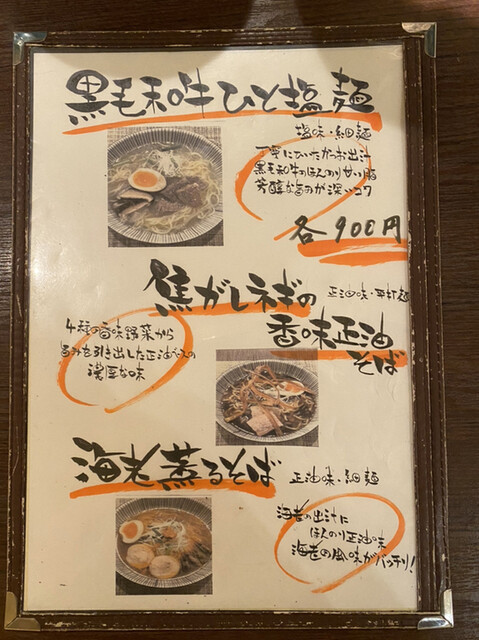 黒毛和牛ひと塩麺
塩味・細麺
一番にひいたかつお出汁
黒毛和牛のほんのり甘い脂
芳醇な旨のが深いコク
各900円
焦がしネギの
正油味・平打麺
香味正油
そば
4種の香味野菜から
旨みを引き出した正油ベースの
濃厚な味
海老蒸るそば
正油味・細麺
海老の出汁に
ほんのり正油味
海老の風味がバッチリ!